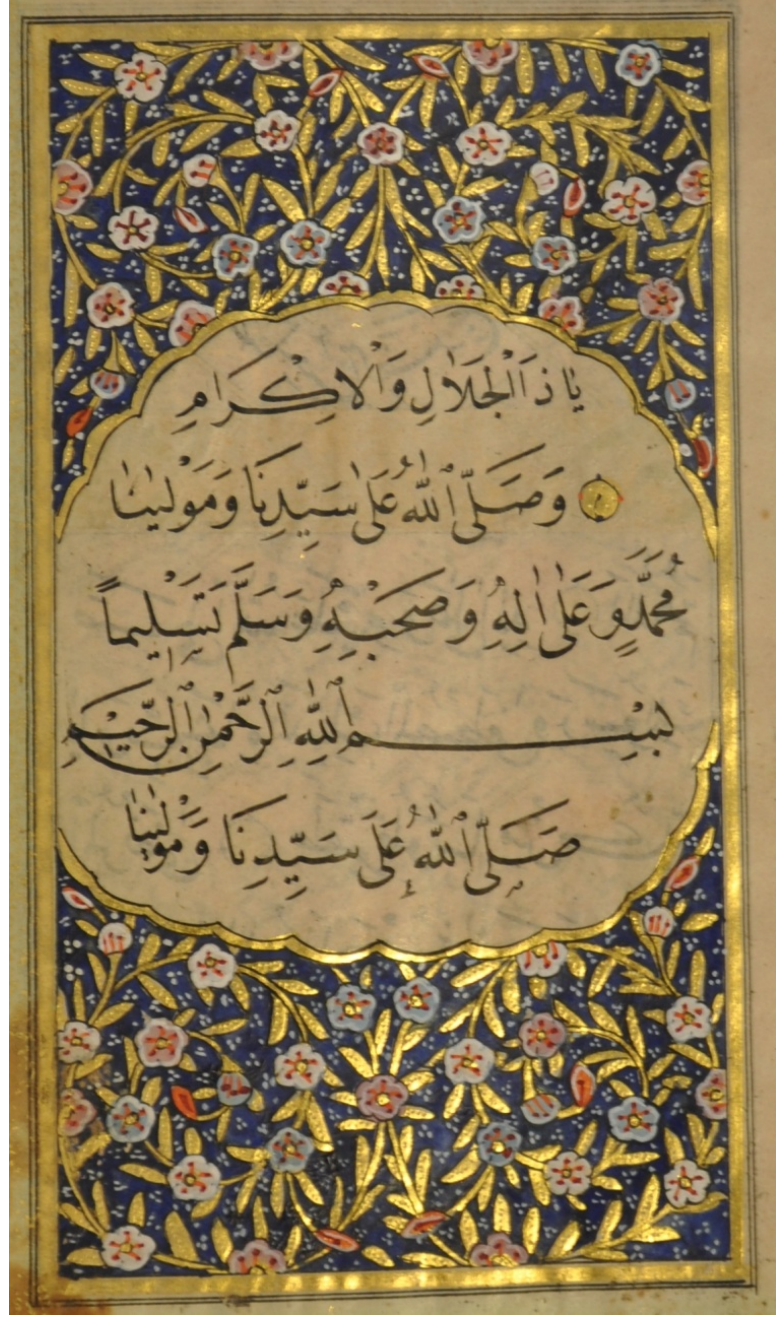 يَا ذَا الْجَلَالِ وَالْاِكْرَامِ
وَصَلَّى ٱللّٰهُ عَلٰى سَيِّدِنَا وَمَوْلٰينَا
مُحَمَّدٍ وَعَلٰى اٰلِهِ وَصَحْبِهِ وَسَلَّمَ تَسْلِيماً
بِسْمِ ٱللّٰهِ ٱلرَّحْمٰنِ ٱلرَّحِيمِ
صَلَّى ٱللّٰهُ عَلَى سَيِّدِنَا وَمَوْلٰينَا